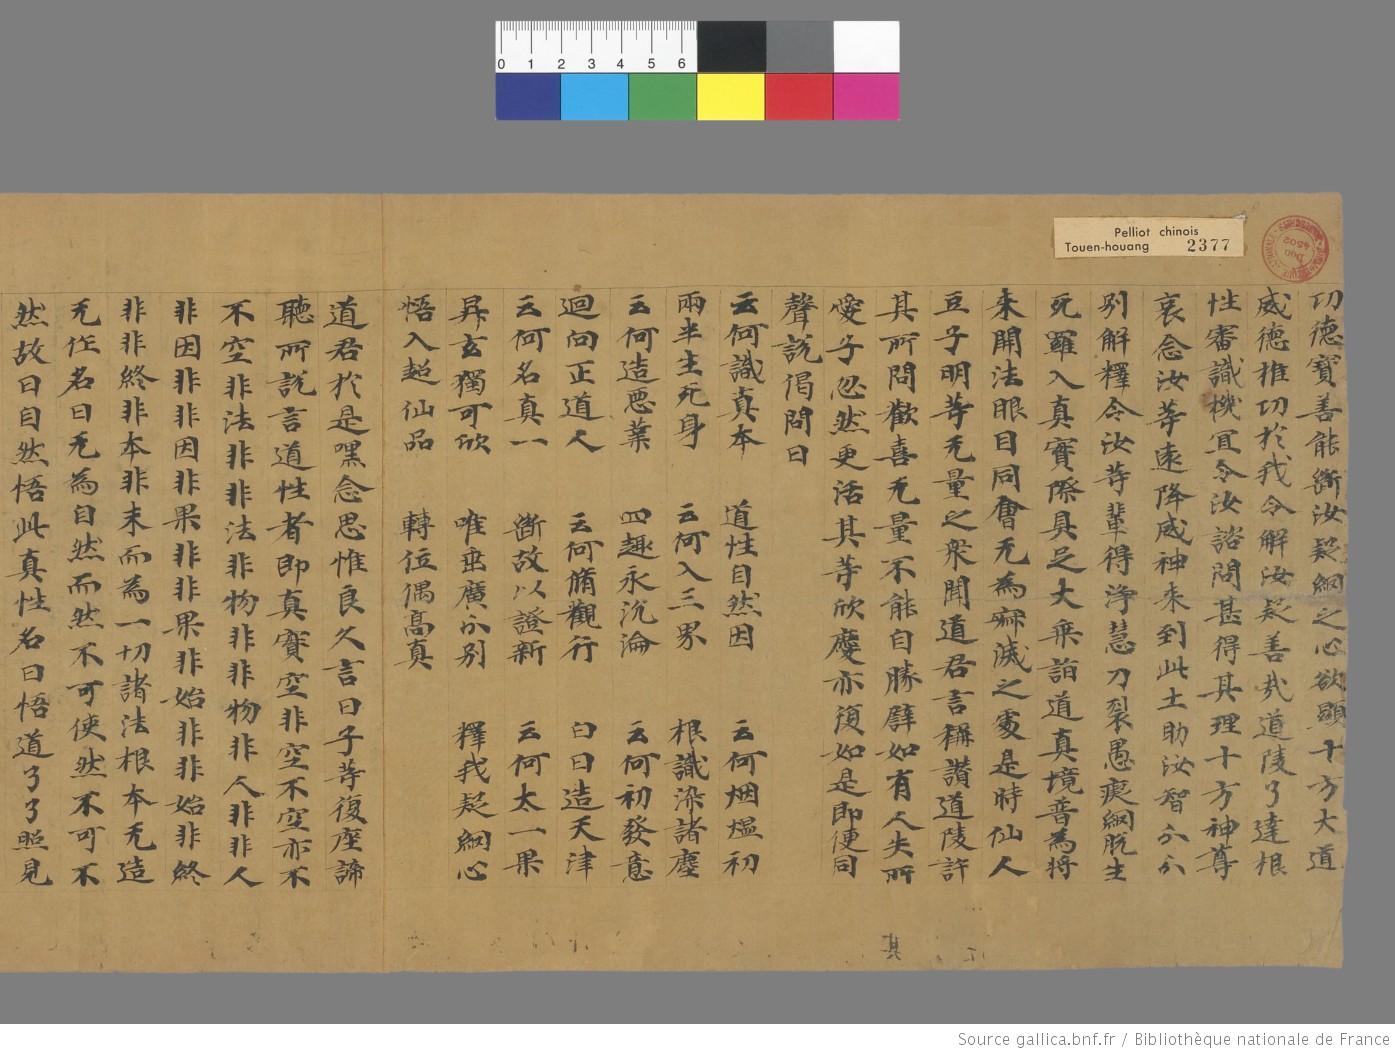 0 1 2 3 4 5 6
Pelliot chinois
Touen-houang 2377
功德寶善能斷汝疑網之心欲顯十方大道
威德推功於我令解汝疑善哉道陵了達根
性審識機冝令汝諮問甚得其理十方神尊
哀念汝等遠降威神来到此土助汝智分分
别解釋令汝等輩得淨慧刀裂愚癡網脱生
死羅入真實際具足大乘詣道真境普為將
来開法眼目同會无為寂滅之處是時仙人
豆子明等无量之衆聞道君言稱讃道陵許
其所問歡喜无量不能自勝辟如有人失所
愛子忽然更活其等欣慶亦復如是即便同
聲說偈問曰
云何識真本 道性自然因 云何烟熅初
兩半生死身 云何入三界 根識染諸塵
云何造惡業 四趣永沉淪 云何初發意
迴向正道人 云何脩觀行 白日造天津
云何名真一 斷故以證新 云何太一果
昇玄獨可欣 唯垂廣分别 釋我疑網心
悟入超仙品 轉位偶髙真
道君於是嘿念思惟良久言曰子等復座諦
聽所說言道性者即真實空非空不空亦不
不空非法非非法非物非非物非人非非人
非因非非因非果非非果非始非非始非終
非非終非本非末而為一切諸法根本无造
无作名曰无為自然而然不可使然不可不
然故曰自然悟此真性名曰悟道了了照見
其
Source gallica.bnf.fr / Bibliothèque nationale de France